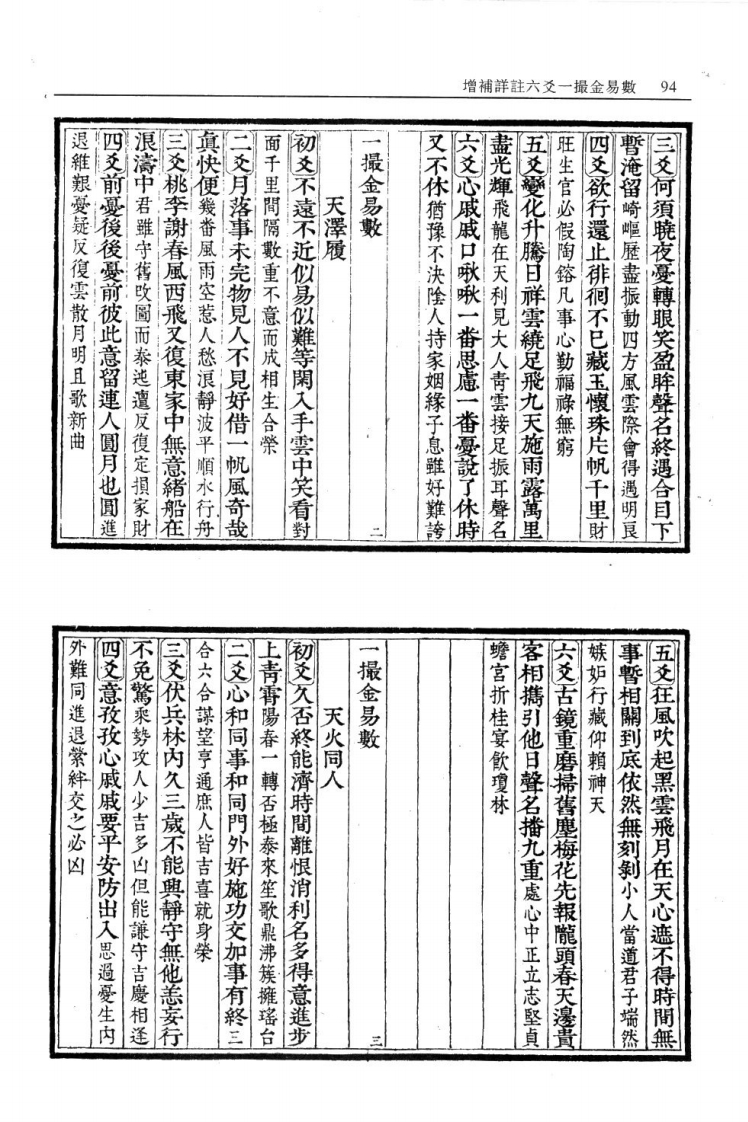 增補詳註六爻一撮金易數 94
三爻何須曉夜憂轉眼笑盈眸聲名終遇合目下
暫淹留崎嶇歷盡振動四方風雲際會得遇明良
四爻欲行還止徘徊不已藏玉懷珠片帆千里財
旺生官必假陶鎔凡事心勤福祿無窮
五爻變化升騰日祥雲繞足飛九天施雨露萬里
盡光輝飛龍在天利見大人青雲接足振耳聲名
六爻心戚戚口啾啾一番思慮一番憂說了休時
又不休猶豫不決陰人持家姻緣子息雖好難誇
一撮金易數 二
天澤履
初爻不遠不近似易似難等閑入手雲中笑看對
面千里間隔數重不意而成相生合榮
二爻月落事未完物見人不見好借一帆風奇哉
真快便幾番風雨空惹人愁浪靜波平順水行舟
三爻桃李謝春風西飛又復東家中無意緒船在
浪濤中君雖守舊改圖而泰迍邅反復定損家財
四爻前憂後後憂前彼此意留連人圓月也圓進
退維艱憂疑反復雲散月明且歌新曲
五爻狂風吹起黑雲飛月在天心遮不得時間無
事暫相關到底依然無刻剝小人當道君子端然
嫉妒行藏仰賴神天
六爻古鏡重磨掃舊塵梅花先報隴頭春天邊貴
客相攜引他日聲名播九重處心中正立志堅貞
蟾宮折桂宴飲瓊林
一撮金易數 三
天火同人
初爻久否終能濟時間離恨消利名多得意進步
上青霄陽春一轉否極泰來笙歌鼎沸簇擁瑤台
二爻心和同事和同門外好施功交加事有終三
合六合謀望亨通庶人皆吉喜就身榮
三爻伏兵林內久三歲不能興靜守無他恙妄行
不免驚乘勢攻人少吉多凶但能謙守吉慶相逢
四爻意孜孜心戚戚要平安防出入思過憂生內
外難同進退縈絆交之必凶